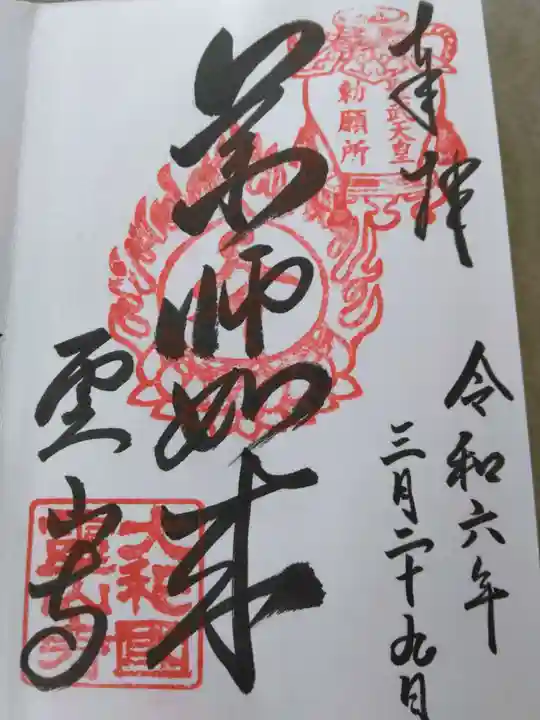 奉拝
聖武天皇
勅願所
令和六年
三月二十九日
薬師如来
霊山寺
大和國
霊山寺